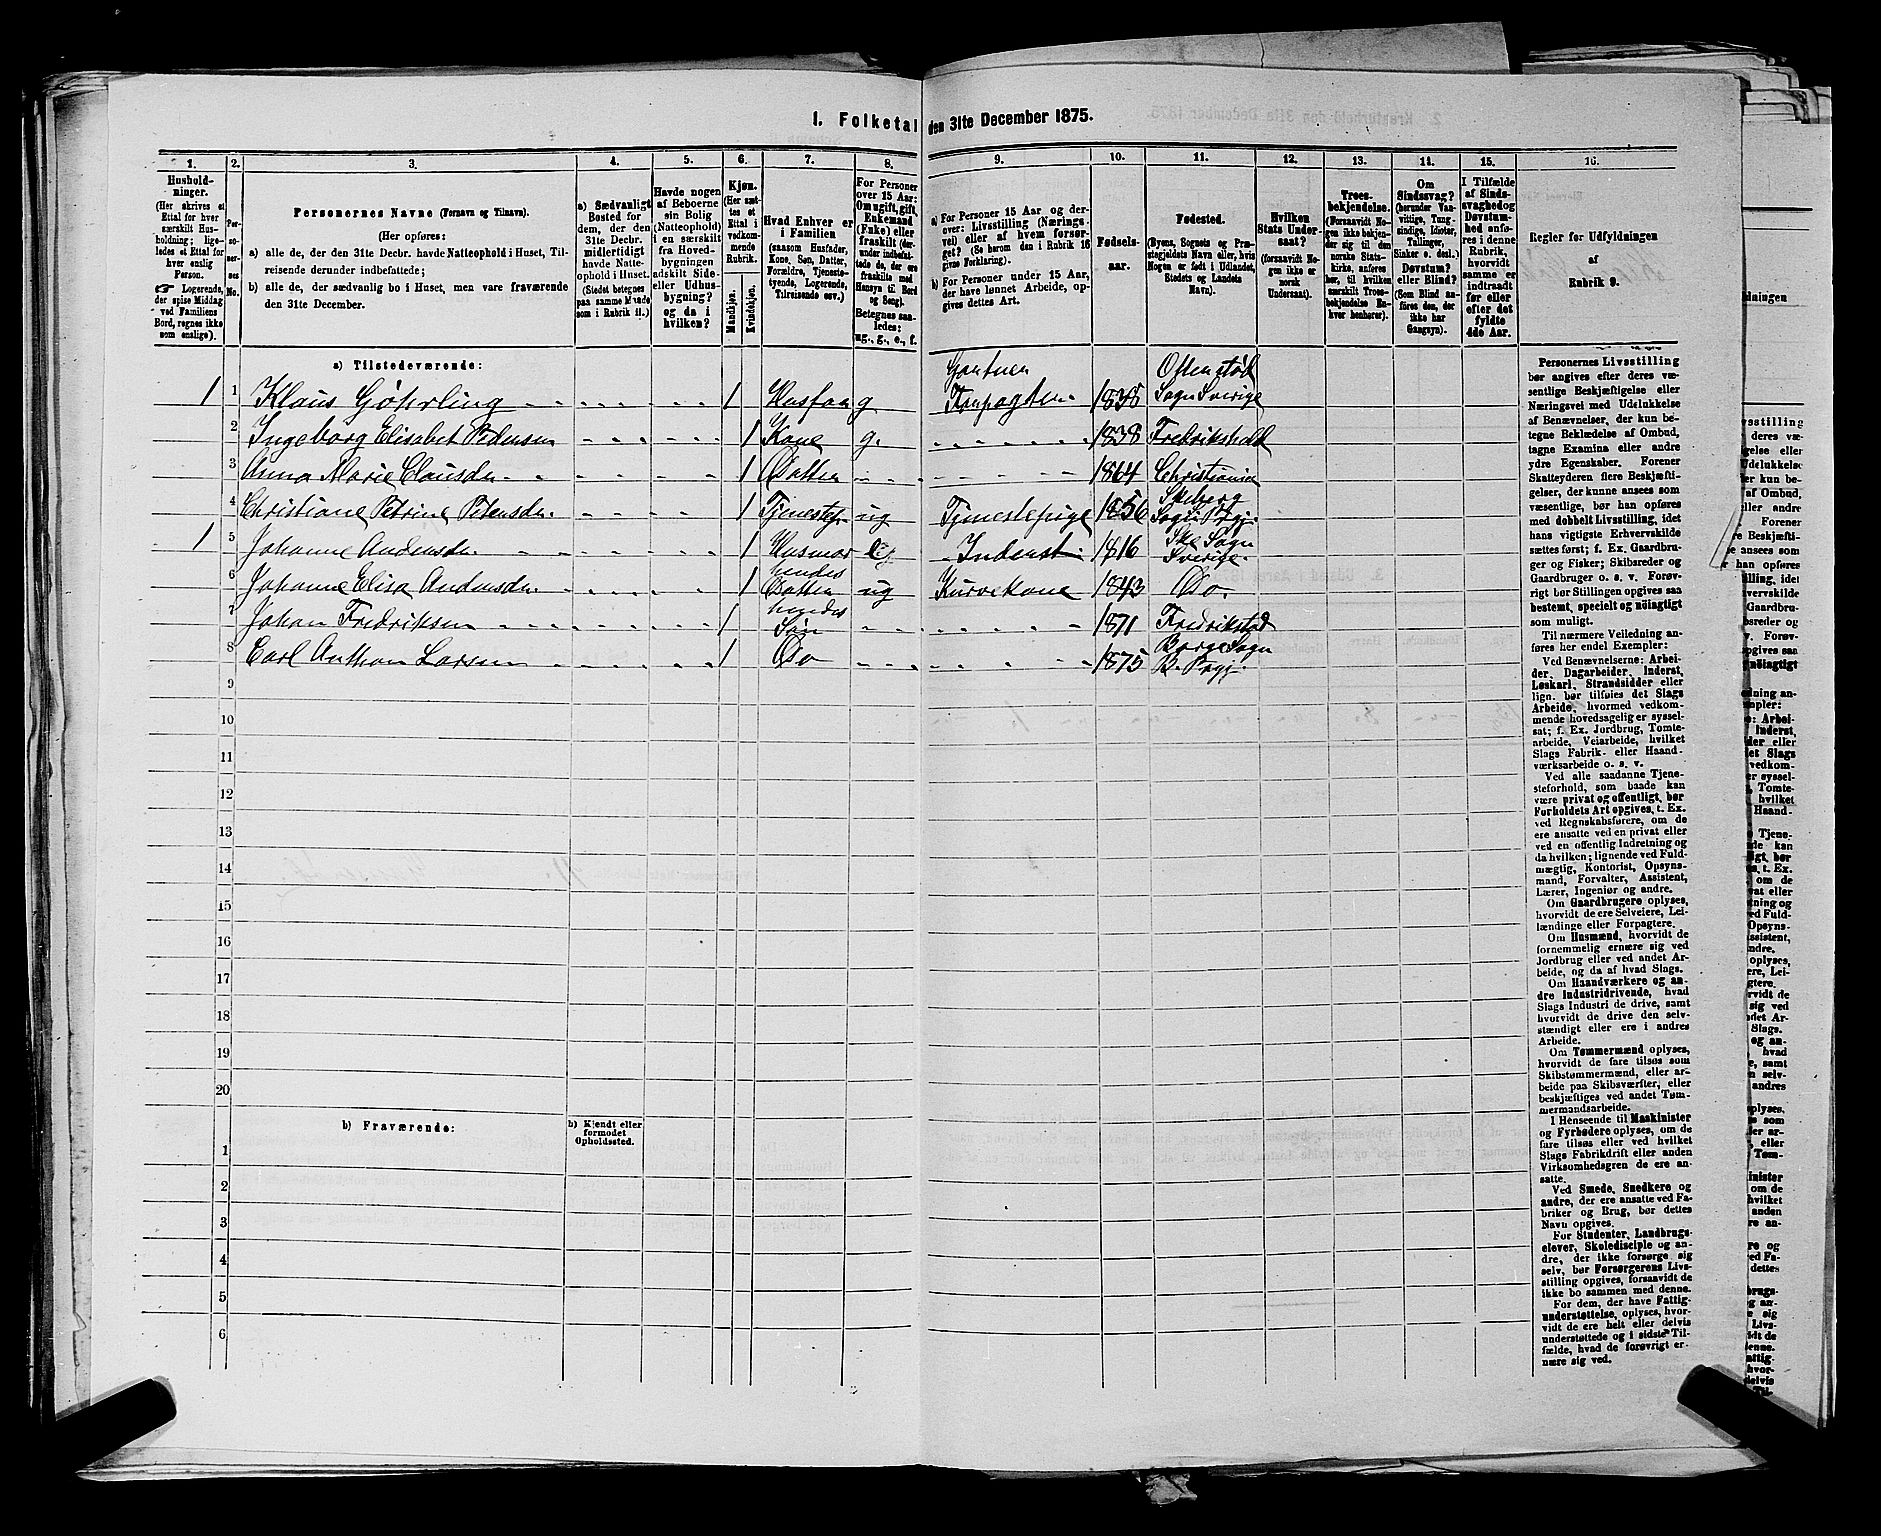 1. Folketal den 31te December 1875.
1. 2. 3. 4. 5. 6. 7. 8. 9. 10. 11. 12. 13. 14. 15. 16.
Hushold-
ninger.
(Her skrives et
Ettal for hver
særskilt Hus-
holdning; lige-
ledes et Ettal for
hver enslig
Person.
☞ Logerende,
der spise Middag
ved Familiens
Bord, regnes ikke
som enslige).
Per-
so-
ner-
nes
No.
Personernes Navne (Fornavn og Tilnavn).
(Her opføres:
a) alle de, der den 31te Decbr. havde Natteophold i Huset, Til-
reisende derunder indbefattede;
b) alle de, der sædvanlig bo i Huset, men vare fraværende
den 31te December.
a) Sædvanligt
Bosted for
dem, der den
31te Decbr.
midlertidigt
havde Natte-
ophold i Huset.
(Stedet betegnes
paa samme Maade
som i Rubrik 11.)
Havde nogen
af Beboerne
sin Bolig
(Natteophold)
i en særskilt
fra Hoved-
bygningen
adskilt Side-
eller Udhus-
bygning?
og da i
hvilken?
Kjøn.
(Her sæt-
tes et
Ettal i
vedkom-
mende
Rubrik.
Mandkjøn.
Kvindekjøn.
Hvad Enhver er
i Familien
(saasom Husfader,
Kone, Søn, Datter,
Forældre, Tjeneste-
tyende, Logerende,
Tilreisende osv.)
For Personer
over 15 Aar:
Om ugift, gift,
Enkemand
(Enke) eller
fraskilt (der-
under indbefat-
tede de, der ere
fraskilte med
Hensyn til Bord
og Seng).
Betegnes saa-
ledes:
ug., g., e., f.
a) For Personer 15 Aar og der-
over: Livsstilling (Nærings-
vei) eller af hvem forsør-
get? (Se herom den i Rubrik 16
givne Forklaring).
b) For Personer under 15 Aar,
der have lønnet Arbeide, op-
gives dettes Art.
Fødsels-
aar.
Fødested.
(Byens, Sognets og Præ-
stegjeldets Navn eller, hvis
Nogen er født i Udlandet,
Stedets og Landets
Navn).
Hvilken
Stats Under-
saat?
(forsaavidt No-
gen ikke er
norsk
Undersaat).
Troes-
bekjendelse.
(Forsaavidt No-
gen ikke bekjen-
der sig til den
norske Stats-
kirke, anføres
her, til hvilken
særskilt Troes-
bekjendelse En-
hver henhører).
Om
Sindssvag?
(herunder Van-
vittige, Tung-
sindige, Idioter,
Tullinger,
Sinker o. desl.)
Døvstum?
eller Blind?
(Som Blind an-
føres den, der
ikke har
Gangsyn).
I Tilfælde
af Sinds-
svaghed og
Døvstum-
hed anfø-
res i denne
Rubrik,
hvorvidt
samme er
indtraadt
før eller
efter det
fyldte
4de Aar.
Regler for Udfyldningen
af
Rubrik 9.
a) Tilstedeværende:
1 1 Klaus Göhrling 1 Husfaa g Gartner Forpagter 1838 Sogn Sverige
2 Ingeborg Elisabet Pedersen 1 Kone g. 1838 Fredrikshald
3 Anna Marie Clausdn. 1 Datter 1864 Christiania
4 Christiane Petrine Petersdn. 1 Tjenestep. ug Tjenestepige 1856 Skeberg Sogn Prgj.
1 5 Johanne Andersdn. 1 Husmor Inderst. 1816 Ske Sogn Sverige.
6 Johanne Elisa Andersdn. 1 hendes Datter ug Kurvekone 1843 Do.
7 Johan Fredriksen 1 hendes Søn 1871 Fredrikstad
8 Carl Anthon Larsen 1 Do 1875 Borge Sogn B. Prgj.
9
10
11
12
13
14
15
16
17
18
19
20
b) Fraværende:
b) Kjendt eller
formodet
Opholdssted.
1
2
3
4
5
6
Personernes Livsstilling
bør angives efter deres væ-
sentlige Beskjæftigelse eller
Næringsvei med Udelukkelse
af Benævnelser, der kun be-
tegne Beklædelse af Ombud,
tagne Examina eller andre
ydre Egenskaber. Forener
Skatteyderen flere Beskjæfti-
gelser, der kunne ansees som
væsentlige, bør han opføres
med dobbelt Livsstilling, idet
hans vigtigste Erhvervskilde
sættes først; f. Ex. Gaardbru-
ger og Fisker; Skibsreder og
Gaardbruger o. s. v. Forøv-
rigt bør Stillingen opgives saa
bestemt, specielt og nøiagtigt
som muligt.
Til nærmere Veiledning an-
føres her endel Exempler:
Ved Benævnelserne: Arbei-
der, Dagarbeider, Inderst,
Løskarl, Strandsidder eller
lign. bør tilføies det Slags
Arbeide, hvormed vedkom-
mende hovedsagelig er syssel-
sat; f. Ex. Jordbrug, Tomte-
arbeide, Veiarbeide, hvilket
Slags Fabrik- eller Haand-
værksarbeide o. s. v.
Ved alle saadanne Tjene-
steforhold, som baade kan
være privat og offentligt, bør
Forholdets Art opgives, t. Ex.
ved Regnskabsførere, om de
ere ansatte ved en privat eller
ved en offentlig Indretning og
da hvilken; lignende ved Fuld-
mægtig, Kontorist, Opsyns-
mand, Forvalter, Assistent,
Lærer, Ingeniør og andre.
Om Gaardbrugere oplyses,
hvorvidt de ere Selveiere, Lei-
lændinge eller Forpagtere.
Om Husmænd, hvorvidt de
fornemmelig ernære sig ved
Jordbrug eller ved andet Ar-
beide, og da af hvad Slags.
Om Haandværkere og an-
dre Industridrivende, hvad
Slags Industri de drive, samt
hvorvidt de drive den selv-
stændigt eller ere i andres
Arbeide.
Om Tømmermænd oplyses,
hvorvidt de fare tilsøs som
Skibstømmermænd, eller ar-
beide paa Skibsværfter, eller
beskjæftiges ved andet Tøm-
mermandsarbeide.
I Henseende til Maskinister
og Fyrbødere oplyses, om de
fare tilsøs eller ved hvilket
Slags Fabrikdrift eller anden
Virksomhedsgren de ere an-
satte.
Ved Smede, Snedkere og
andre, der ere ansatte ved Fa-
briker og Brug, bør dettes
Navn opgives.
For Studenter, Landbrugs-
elever, Skoledisciple og an-
dre, der ikke forsørge sig
selv, bør Forsørgerens Livs-
stilling opgives, forsaavidt de
ikke bo sammen med denne.
For dem, der have Fattig-
understøttelse, oplyses, hvor-
vidt de ere helt eller delvis
understøttede og i sidste Til-
fælde, hvad de forøvrigt er-
nære sig ved.